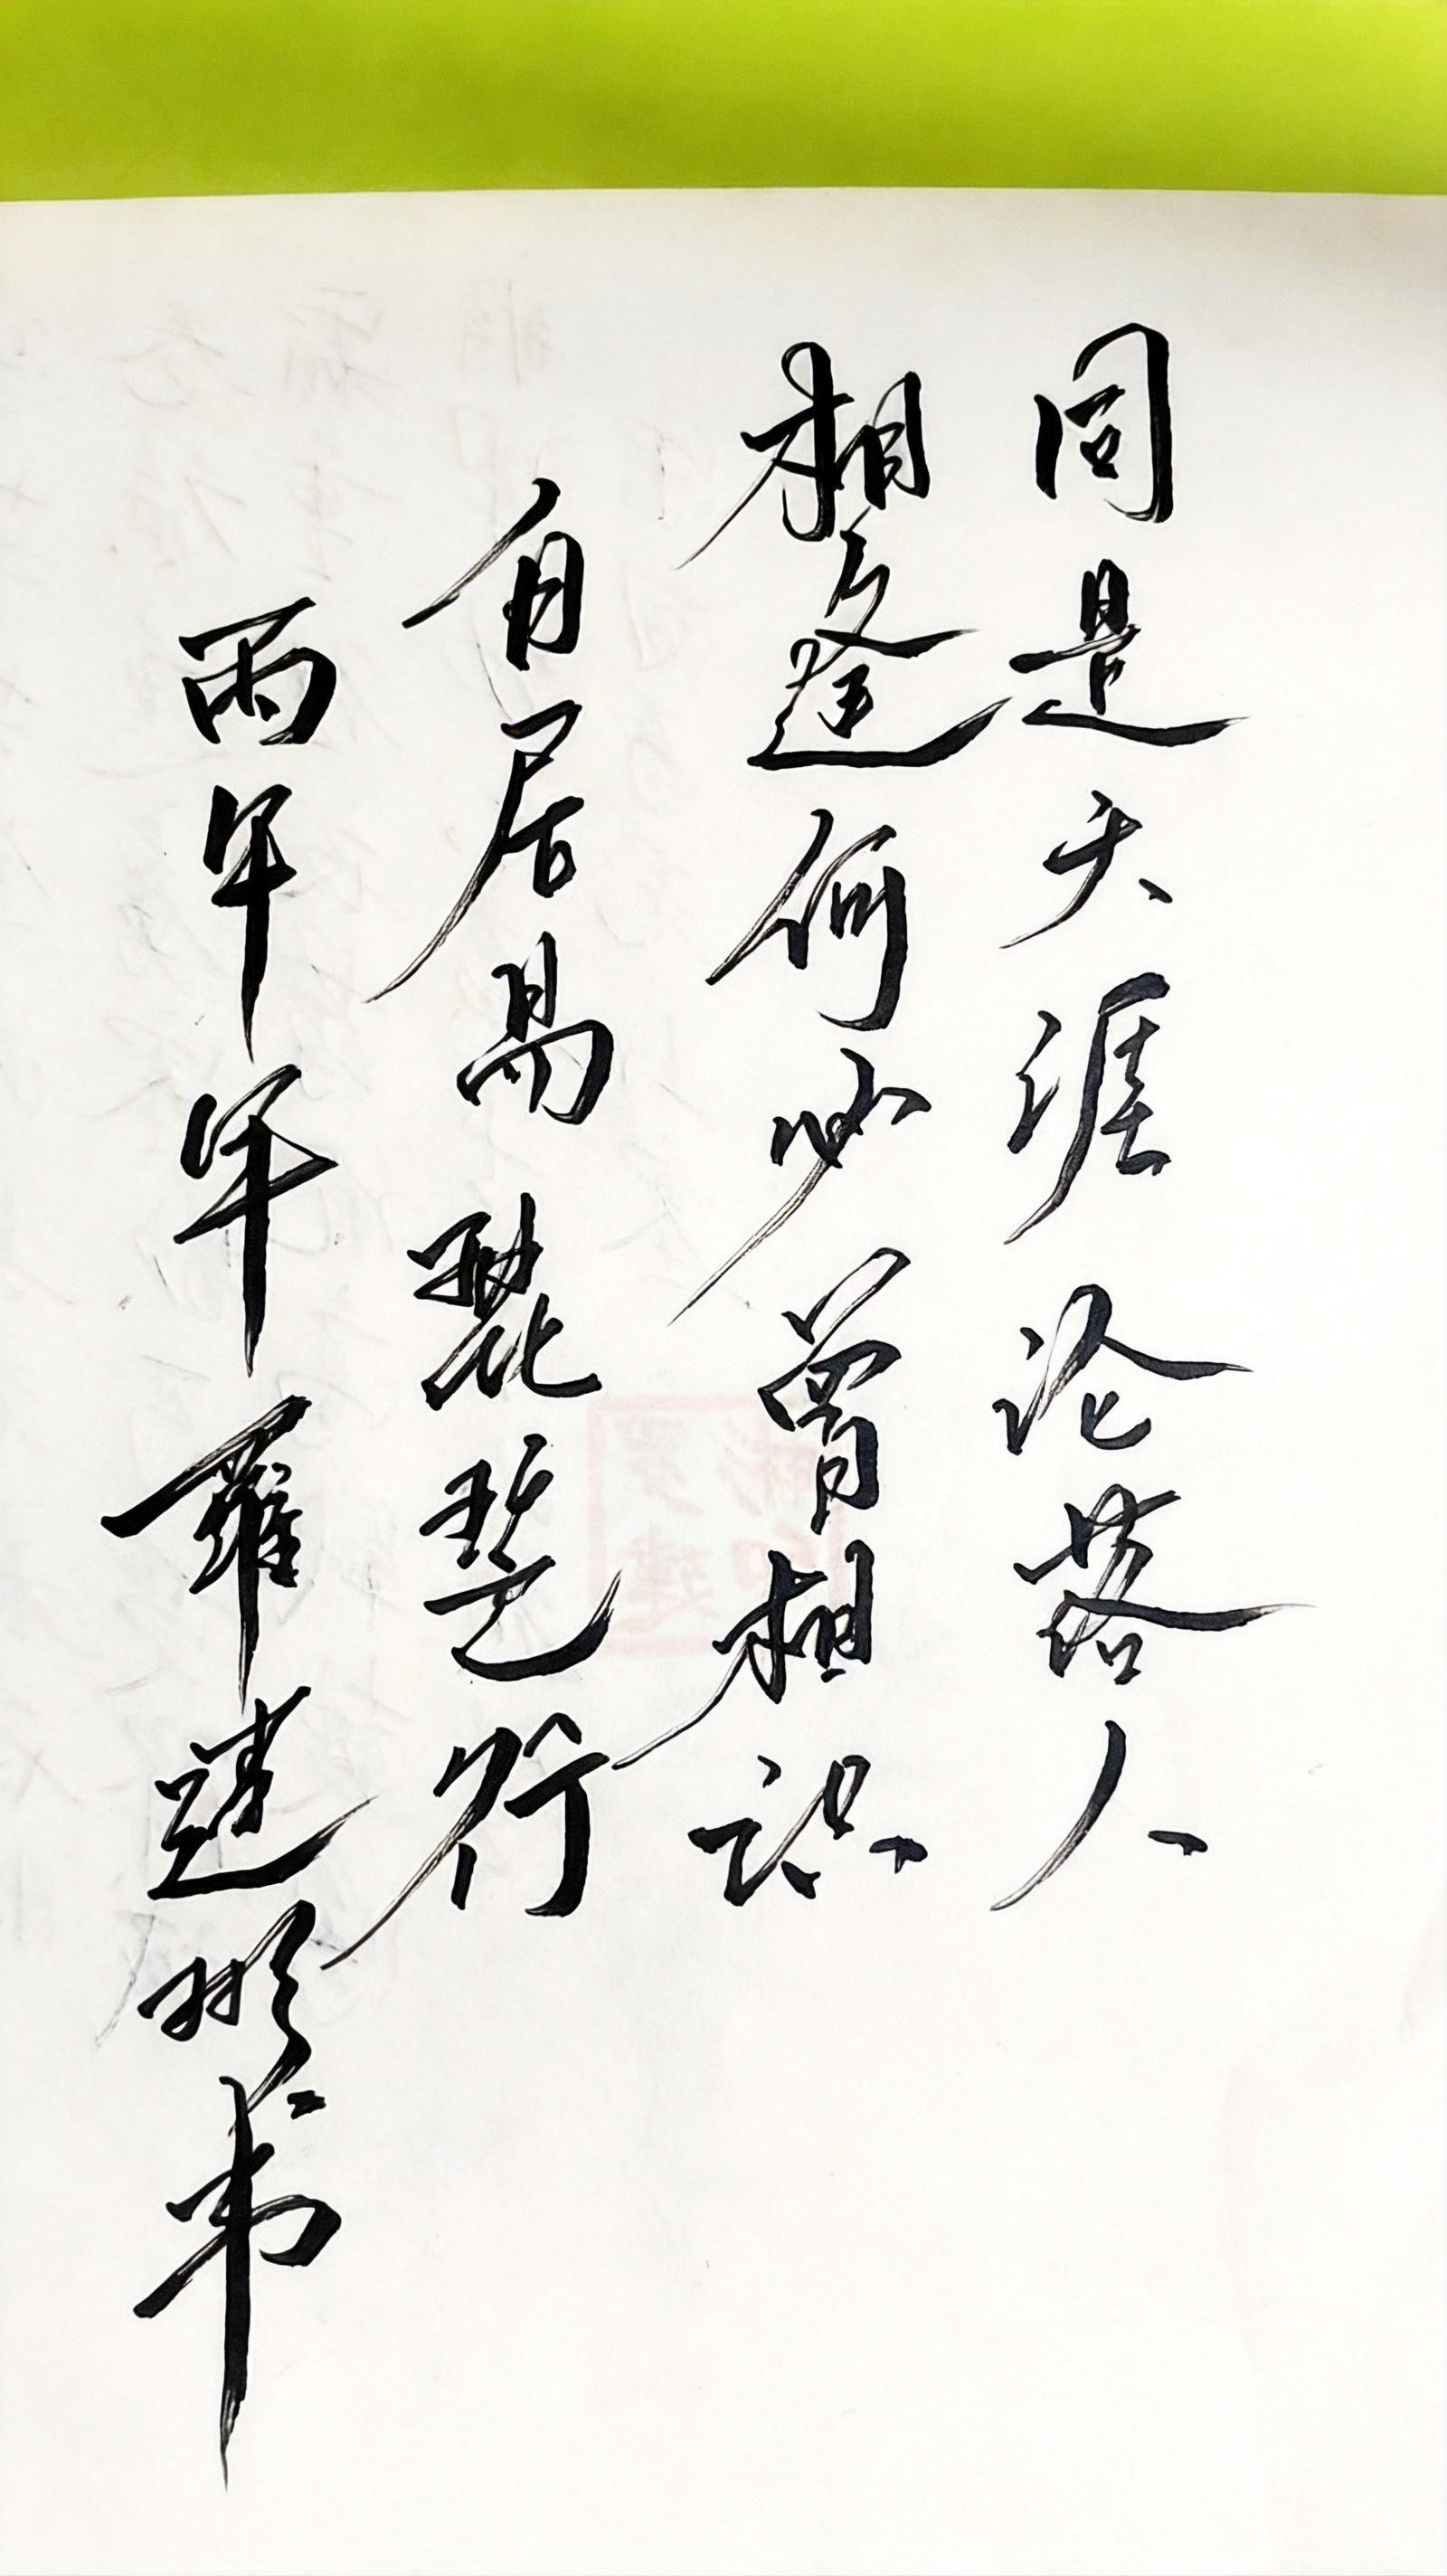 同是天涯沦落人
相逢何必曾相识
白居易琵琶行
丙午年罗建彬书